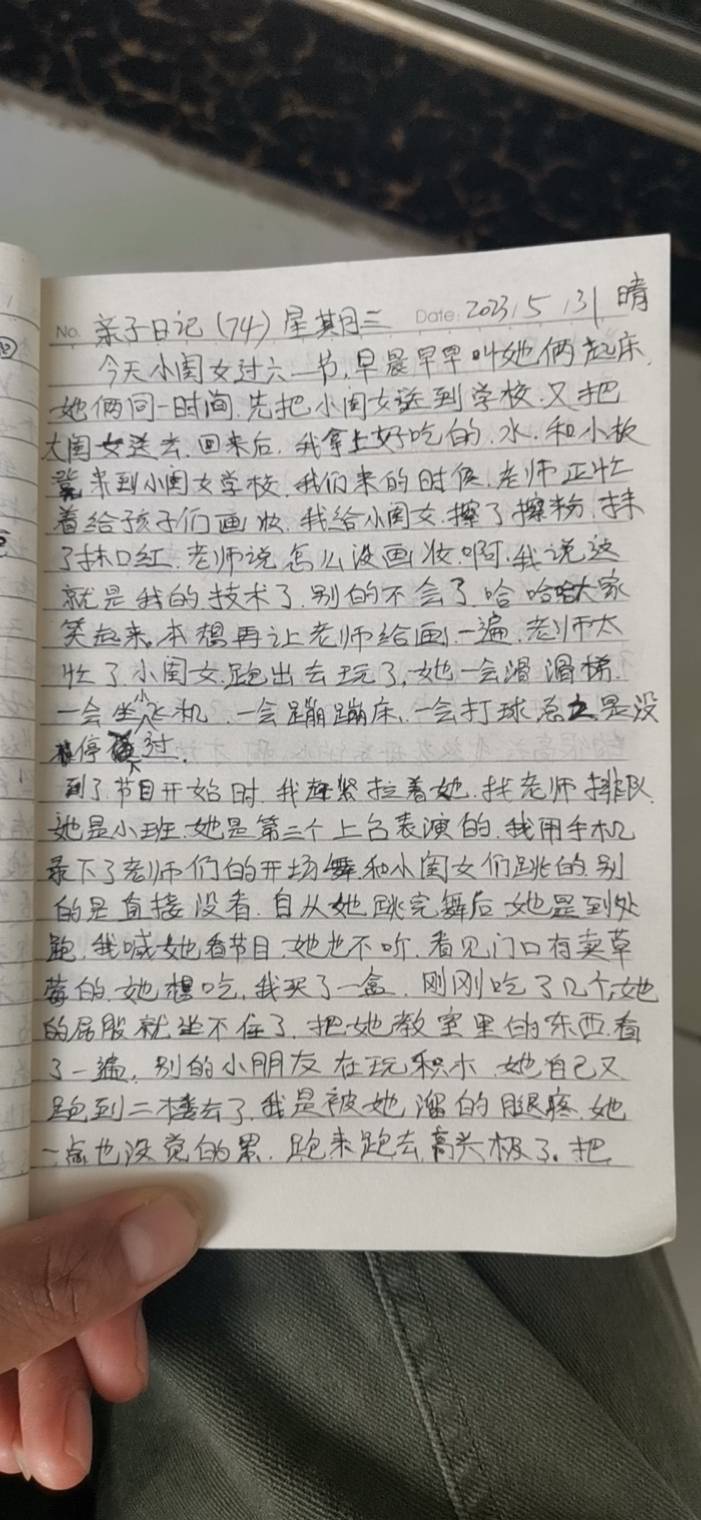 No. 亲子日记(74) 星期三 Date: 2023,5,31 晴
今天小闺女过六一节,早晨早早叫她俩起床.
她俩同一时间.先把小闺女送到学校.又把
大闺女送去.回来后.我拿上好吃的.水.和小板
凳来到小闺女学校.我们来的时候.老师正忙
着给孩子们画妆.我给小闺女.擦了擦粉.抹
了抹口红.老师说怎么没画妆.啊.我说这
就是我的技术了.别的不会了.哈哈哈大家
笑起来.本想再让老师给画一遍.老师太
忙了小闺女.跑出去玩了,她一会滑滑梯.
一会坐小飞机.一会蹦蹦床.一会打球总之是没
停过.
到了节目开始时.我赶紧拉着她.找老师排队.
她是小班.她是第三个上台表演的.我用手机
录下了老师们的开场舞.和小闺女们跳的.别
的是直接没看.自从她跳完舞后.她是到处
跑.我喊她看节目.她也不听.看见门口有卖草
莓的.她想吃,我买了一盒.刚刚吃了几个,她
的屁股就坐不住了.把她教室里的东西.看
了一遍,别的小朋友在玩积木.她自己又
跑到二楼去了.我是被她溜的腿疼.她
一点也没觉的累.跑来跑去.高兴极了.把